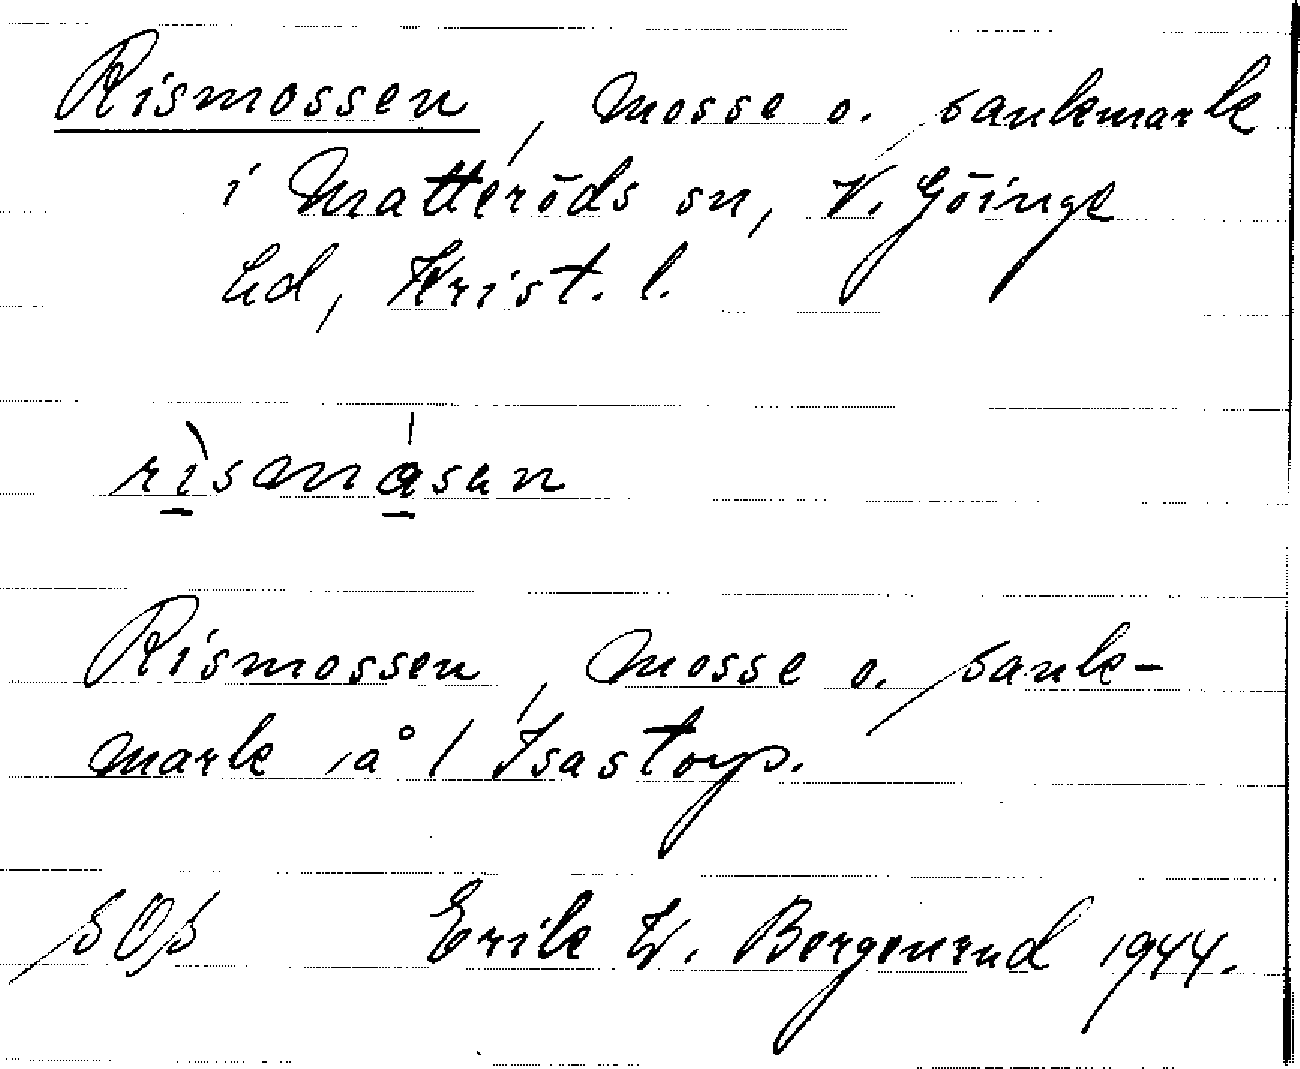 Rismossen, mosse o. sankmark
i Matteröds sn, V. Göinge
hd, Krist. l.
risamåsan
Rismossen, mosse o. sank-
mark å / Isastorp.
SOS Erik W. Bergenrud 1944.